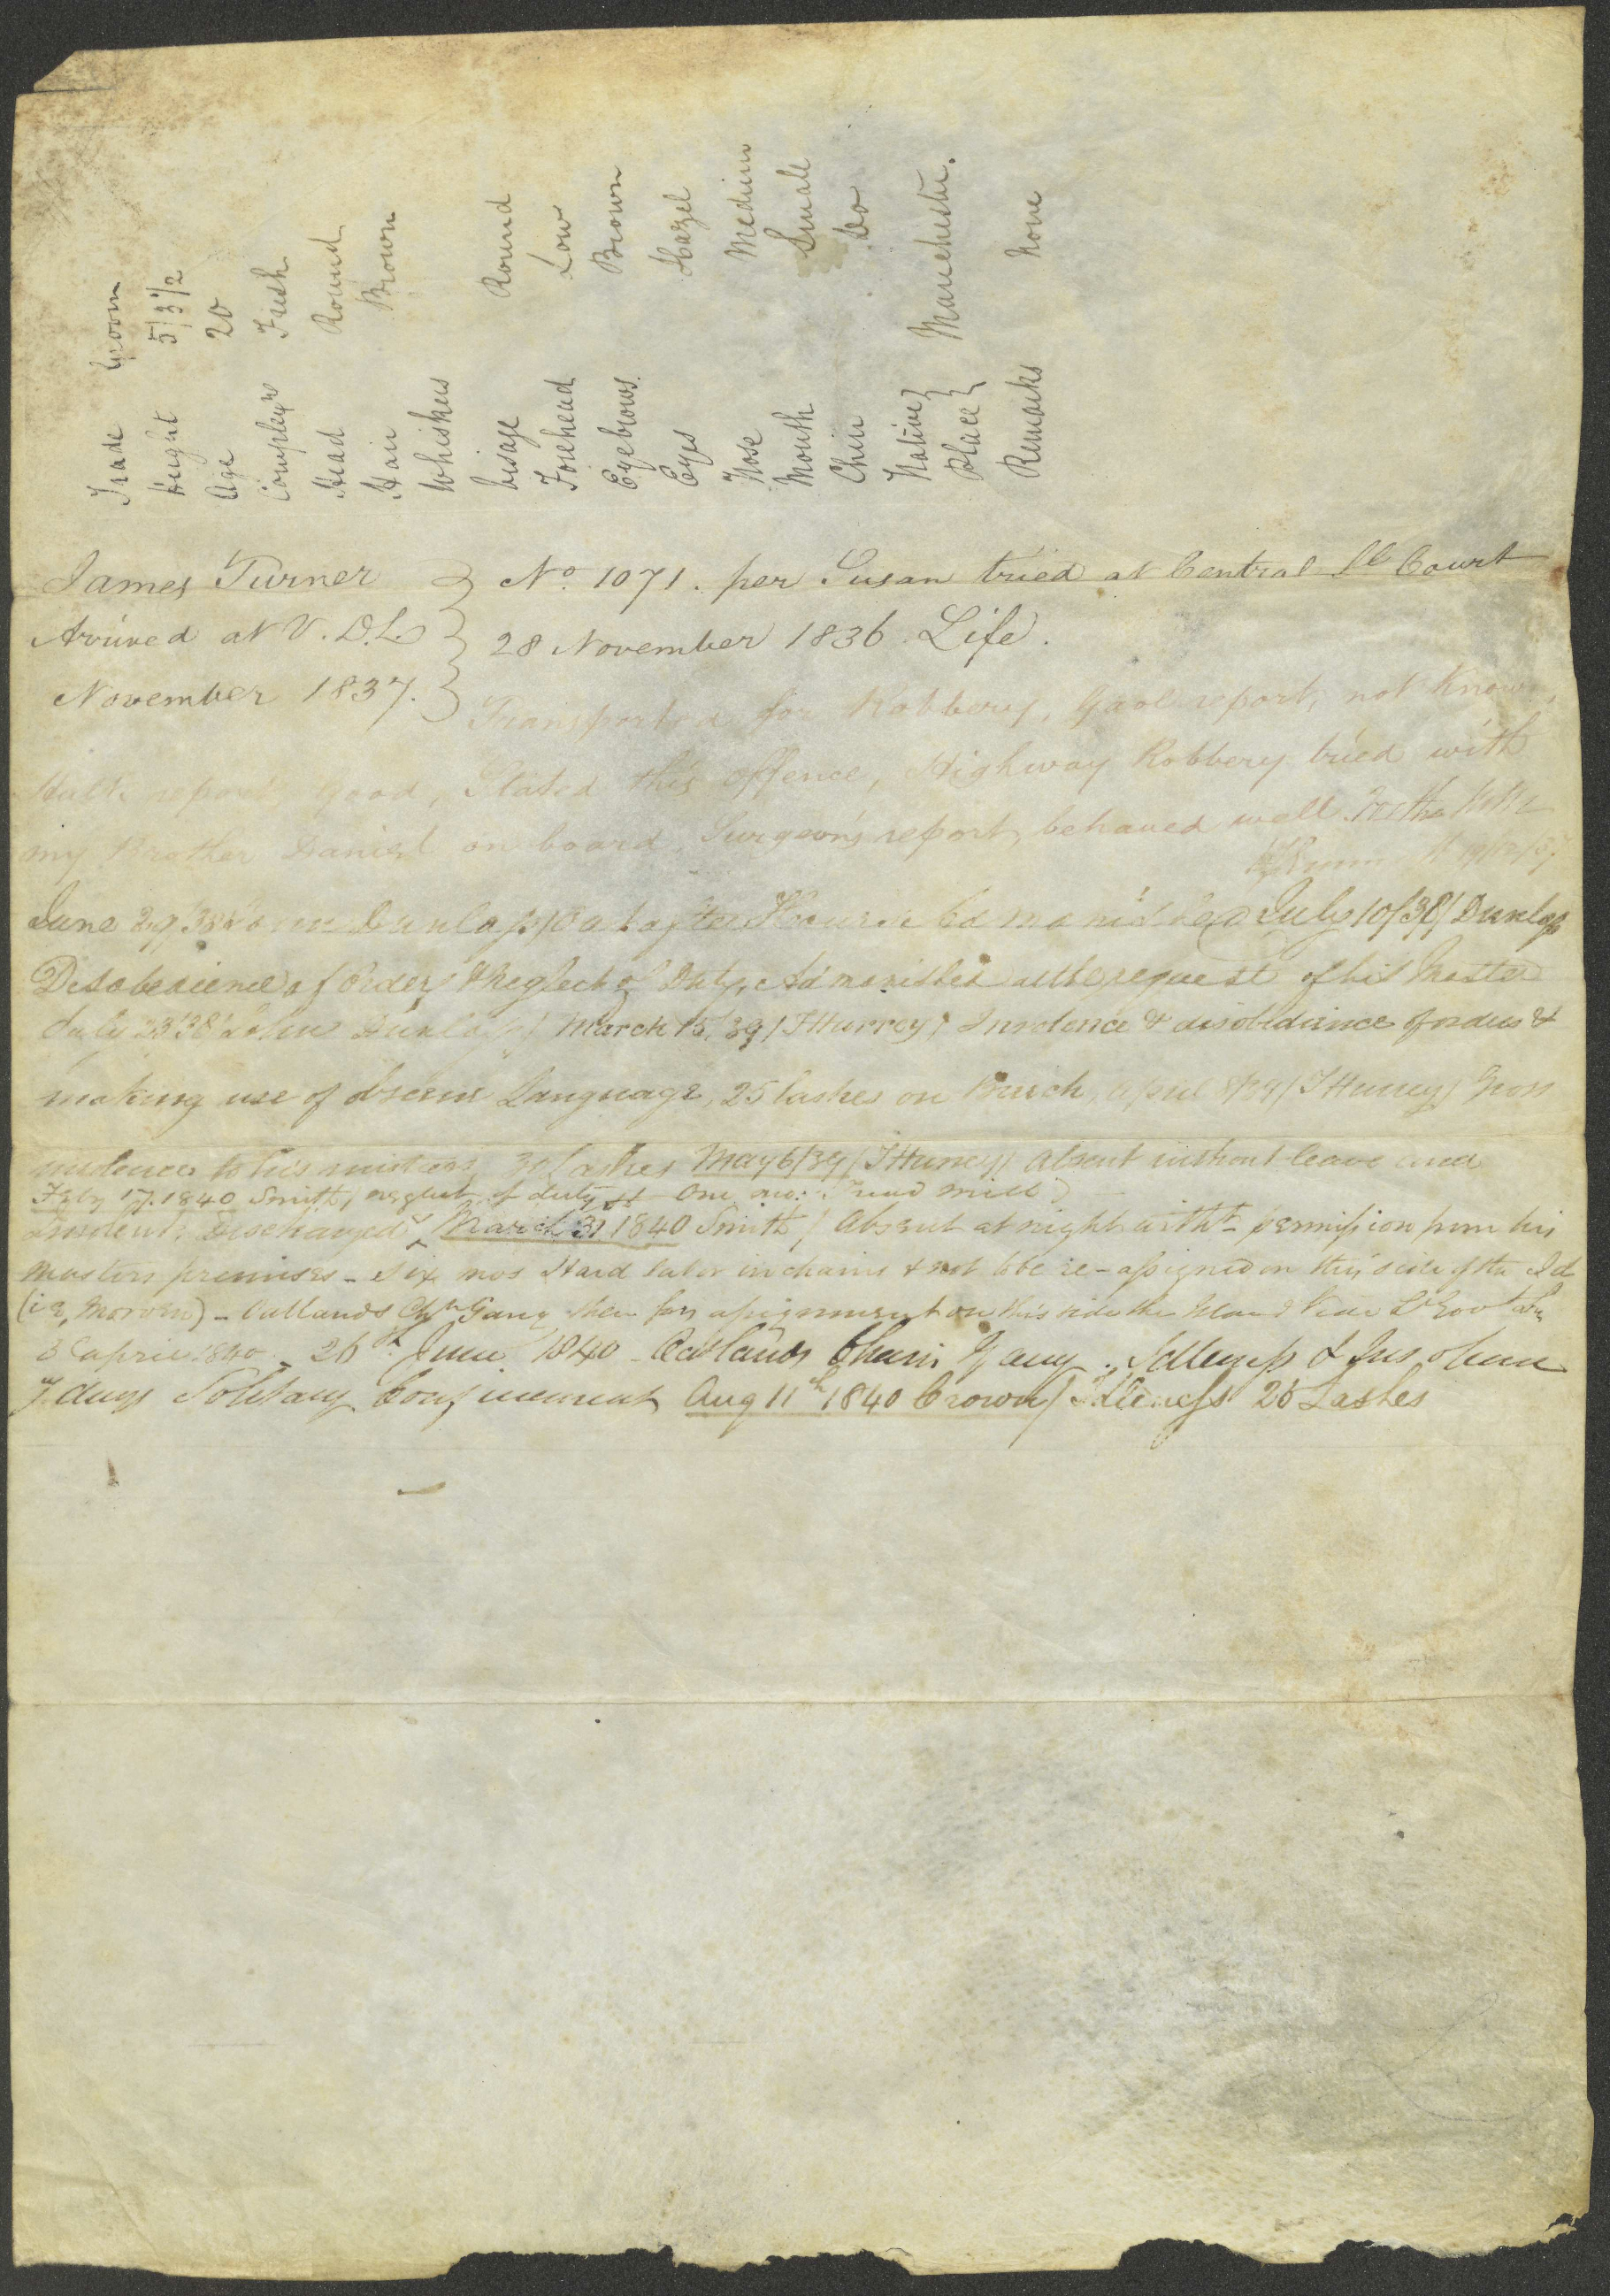 Trade Groom
Height 5/3 1/2
Age 20
Complexn Fresh
Head Round
Hair Brown
Whiskers
Visage Round
Forehead Low
Eyebrows Brown
Eyes Hazel
Nose Medium
Mouth Small
Chin Do
Native } Manchester.
Place }
Remarks None
James Turner } No. 1071. per Susan tried at Central Court
Arrived at V.D.L. } 28 November 1836 Life.
November 1837. }
Transported for Robbery, Gaol report, not Known,
Hulk report, good, Stated this offence, Highway Robbery tried with
my Brother Daniel on board, Surgeon's report, behaved well.
June 29/38 Dunlap / Out after Hours Admonished July 10/38/ Dunlap
Disobedience of Orders & Neglect of Duty, Admonished at the request of his Master
July 23/38 Dunlap / March 15, 39 / J Hurrey / Insolence & disobedience of orders &
making use of obscene Language, 25 lashes on Breech, April 8/39 / J Hurrey / Gross
insolence to his mistress 30 lashes May 6/39 / J Hurrey / Absent without leave and
Feby 17. 1840 Smith / neglect of duty One mo: Tread mill
Insolent: Discharged March 31 1840 Smith / Absent at night witht permission from his
masters premises - Six mos Hard labor in chains & not to be re-assigned on this side of the Id
(i.e, Morven) - Oatlands Chn Gang then for assignment on this side the Island Vide Lt Govr
3 April 1840 - 26th June 1840 Oatlands Chain Gang. Idleness & Insolence
7 days Solitary Confinement Aug 11th 1840 Crown / Idleness 25 Lashes